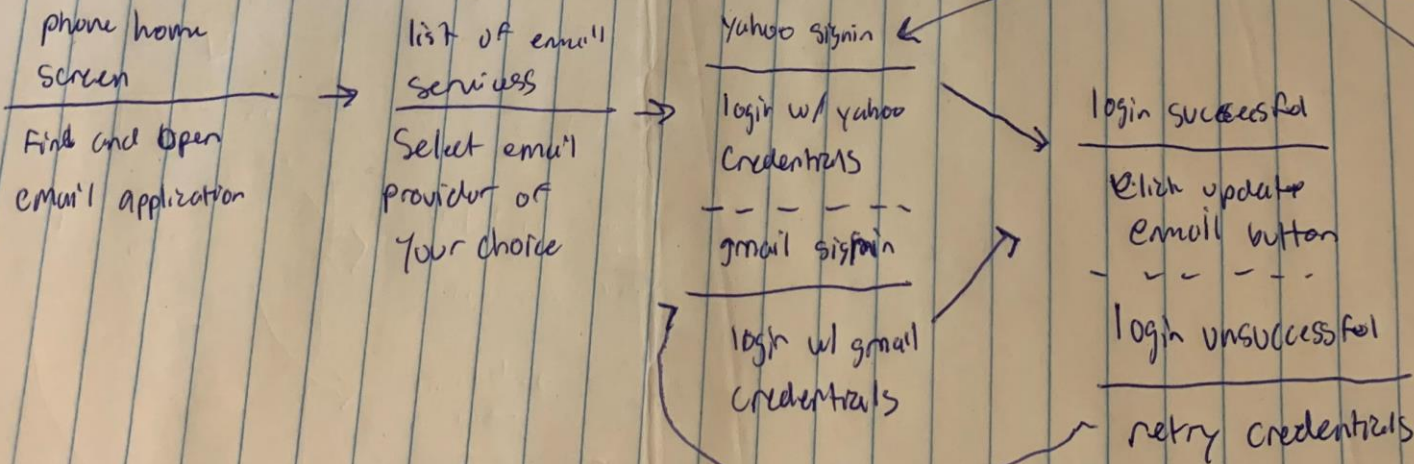 phone home
screen
Find and Open
email application
list of email
serviuss
Select email
provider of
Your choice
yahoo signin
login w/ yahoo
Credentials
gmail signin
login w/ gmail
credentials
login successful
Click update
email button
login unsuccessful
retry credentials